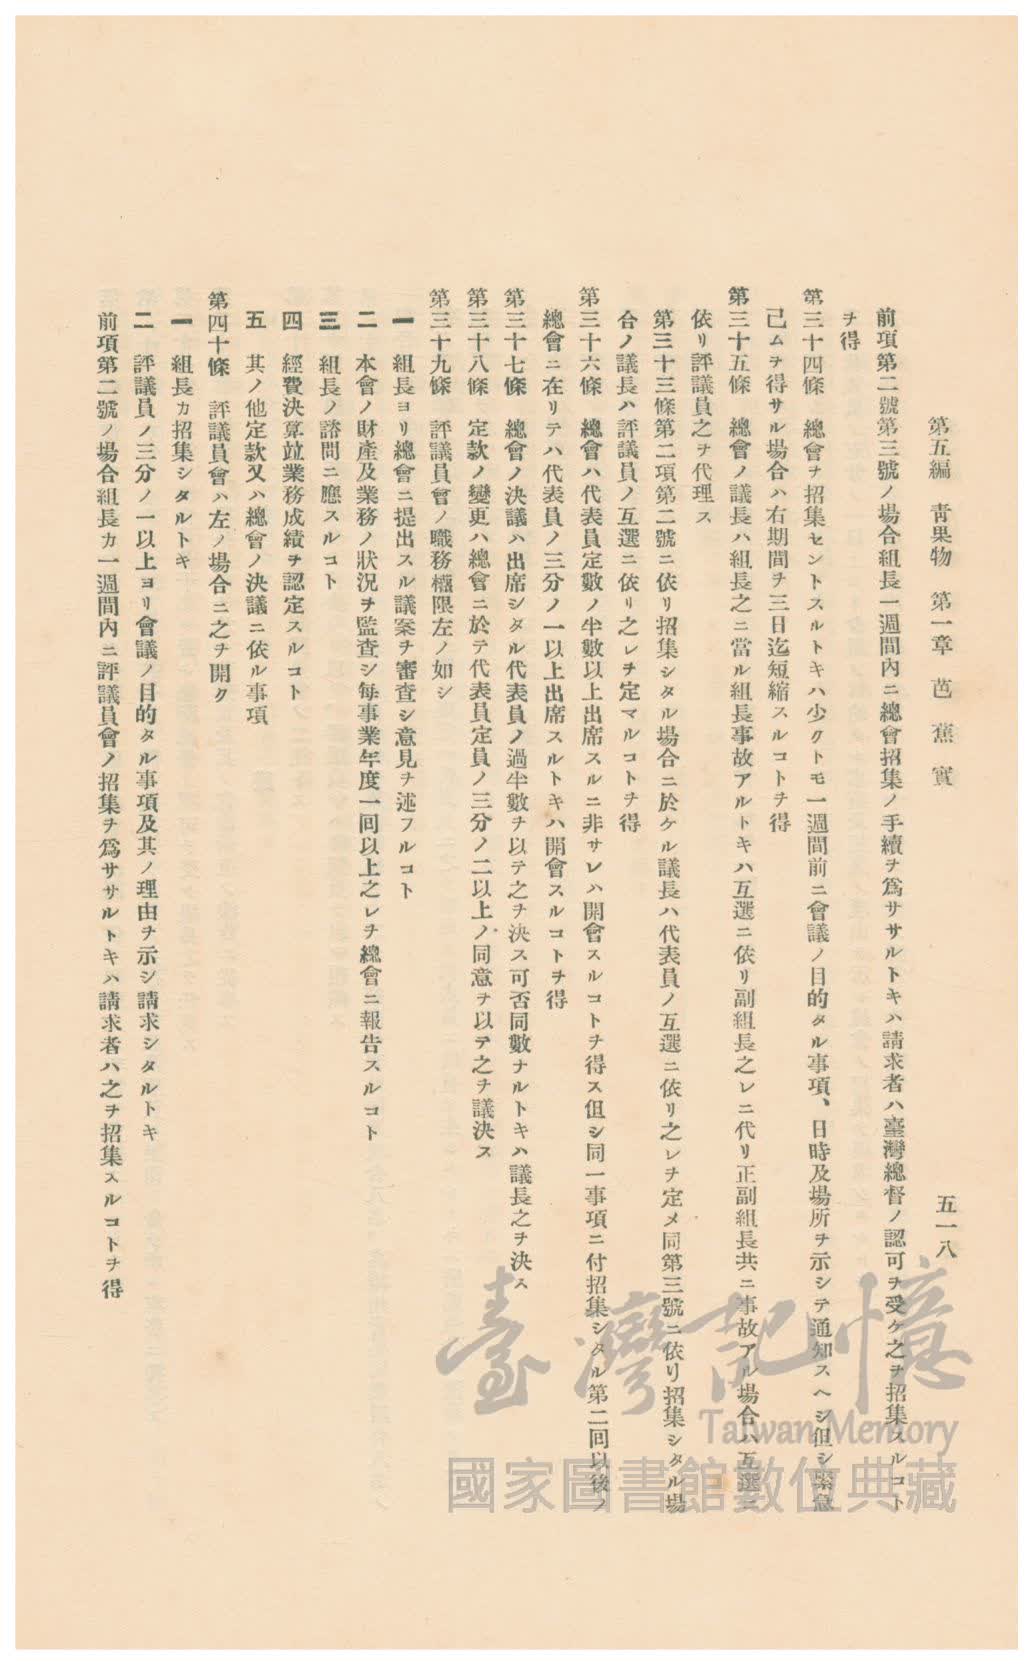 第五編　靑果物　第一章　芭蕉實　　五一八
前項第二號第三號ノ場合組長一週間內ニ總會招集ノ手續ヲ爲ササルトキハ請求者ハ臺灣總督ノ認可ヲ受ケ之ヲ招集スルコト
ヲ得
第三十四條　總會ヲ招集セントスルトキハ少クトモ一週間前ニ會議ノ目的タル事項、日時及場所ヲ示シテ通知スヘシ但シ緊急
己ムヲ得サル場合ハ右期間ヲ三日迄短縮スルコトヲ得
第三十五條　總會ノ議長ハ組長之ニ當ル組長事故アルトキハ互選ニ依リ副組長之レニ代リ正副組長共ニ事故アル場合ハ互選ニ
依リ評議員之ヲ代理ス
第三十三條第二項第二號ニ依リ招集シタル場合ニ於ケル議長ハ代表員ノ互選ニ依リ之レヲ定メ同第三號ニ依リ招集シタル場
合ノ議長ハ評議員ノ互選ニ依リ之レヲ定マルコトヲ得
第三十六條　總會ハ代表員定數ノ半數以上出席スルニ非サレハ開會スルコトヲ得ス但シ同一事項ニ付招集シタル第二回以後ノ
總會ニ在リテハ代表員ノ三分ノ一以上出席スルトキハ開會スルコトヲ得
第三十七條　總會ノ決議ハ出席シタル代表員ノ過半數ヲ以テ之ヲ決ス可否同數ナルトキハ議長之ヲ決ス
第三十八條　定款ノ變更ハ總會ニ於テ代表員定員ノ三分ノ二以上ノ同意ヲ以テ之ヲ議決ス
第三十九條　評議員會ノ職務權限左ノ如シ
一　組長ヨリ總會ニ提出スル議案ヲ審查シ意見ヲ述フルコト
二　本會ノ財產及業務ノ狀況ヲ監查シ每事業年度一回以上之レヲ總會ニ報告スルコト
三　組長ノ諮問ニ應スルコト
四　經費決算竝業務成績ヲ認定スルコト
五　其ノ他定款又ハ總會ノ決議ニ依ル事項
第四十條　評議員會ハ左ノ場合ニ之ヲ開ク
一　組長カ招集シタルトキ
二　評議員ノ三分ノ一以上ヨリ會議ノ目的タル事項及其ノ理由ヲ示シ請求シタルトキ
前項第二號ノ場合組長カ一週間內ニ評議員會ノ招集ヲ爲ササルトキハ請求者ハ之ヲ招集スルコトヲ得
臺灣記憶
Taiwan Memory
國家圖書館數位典藏